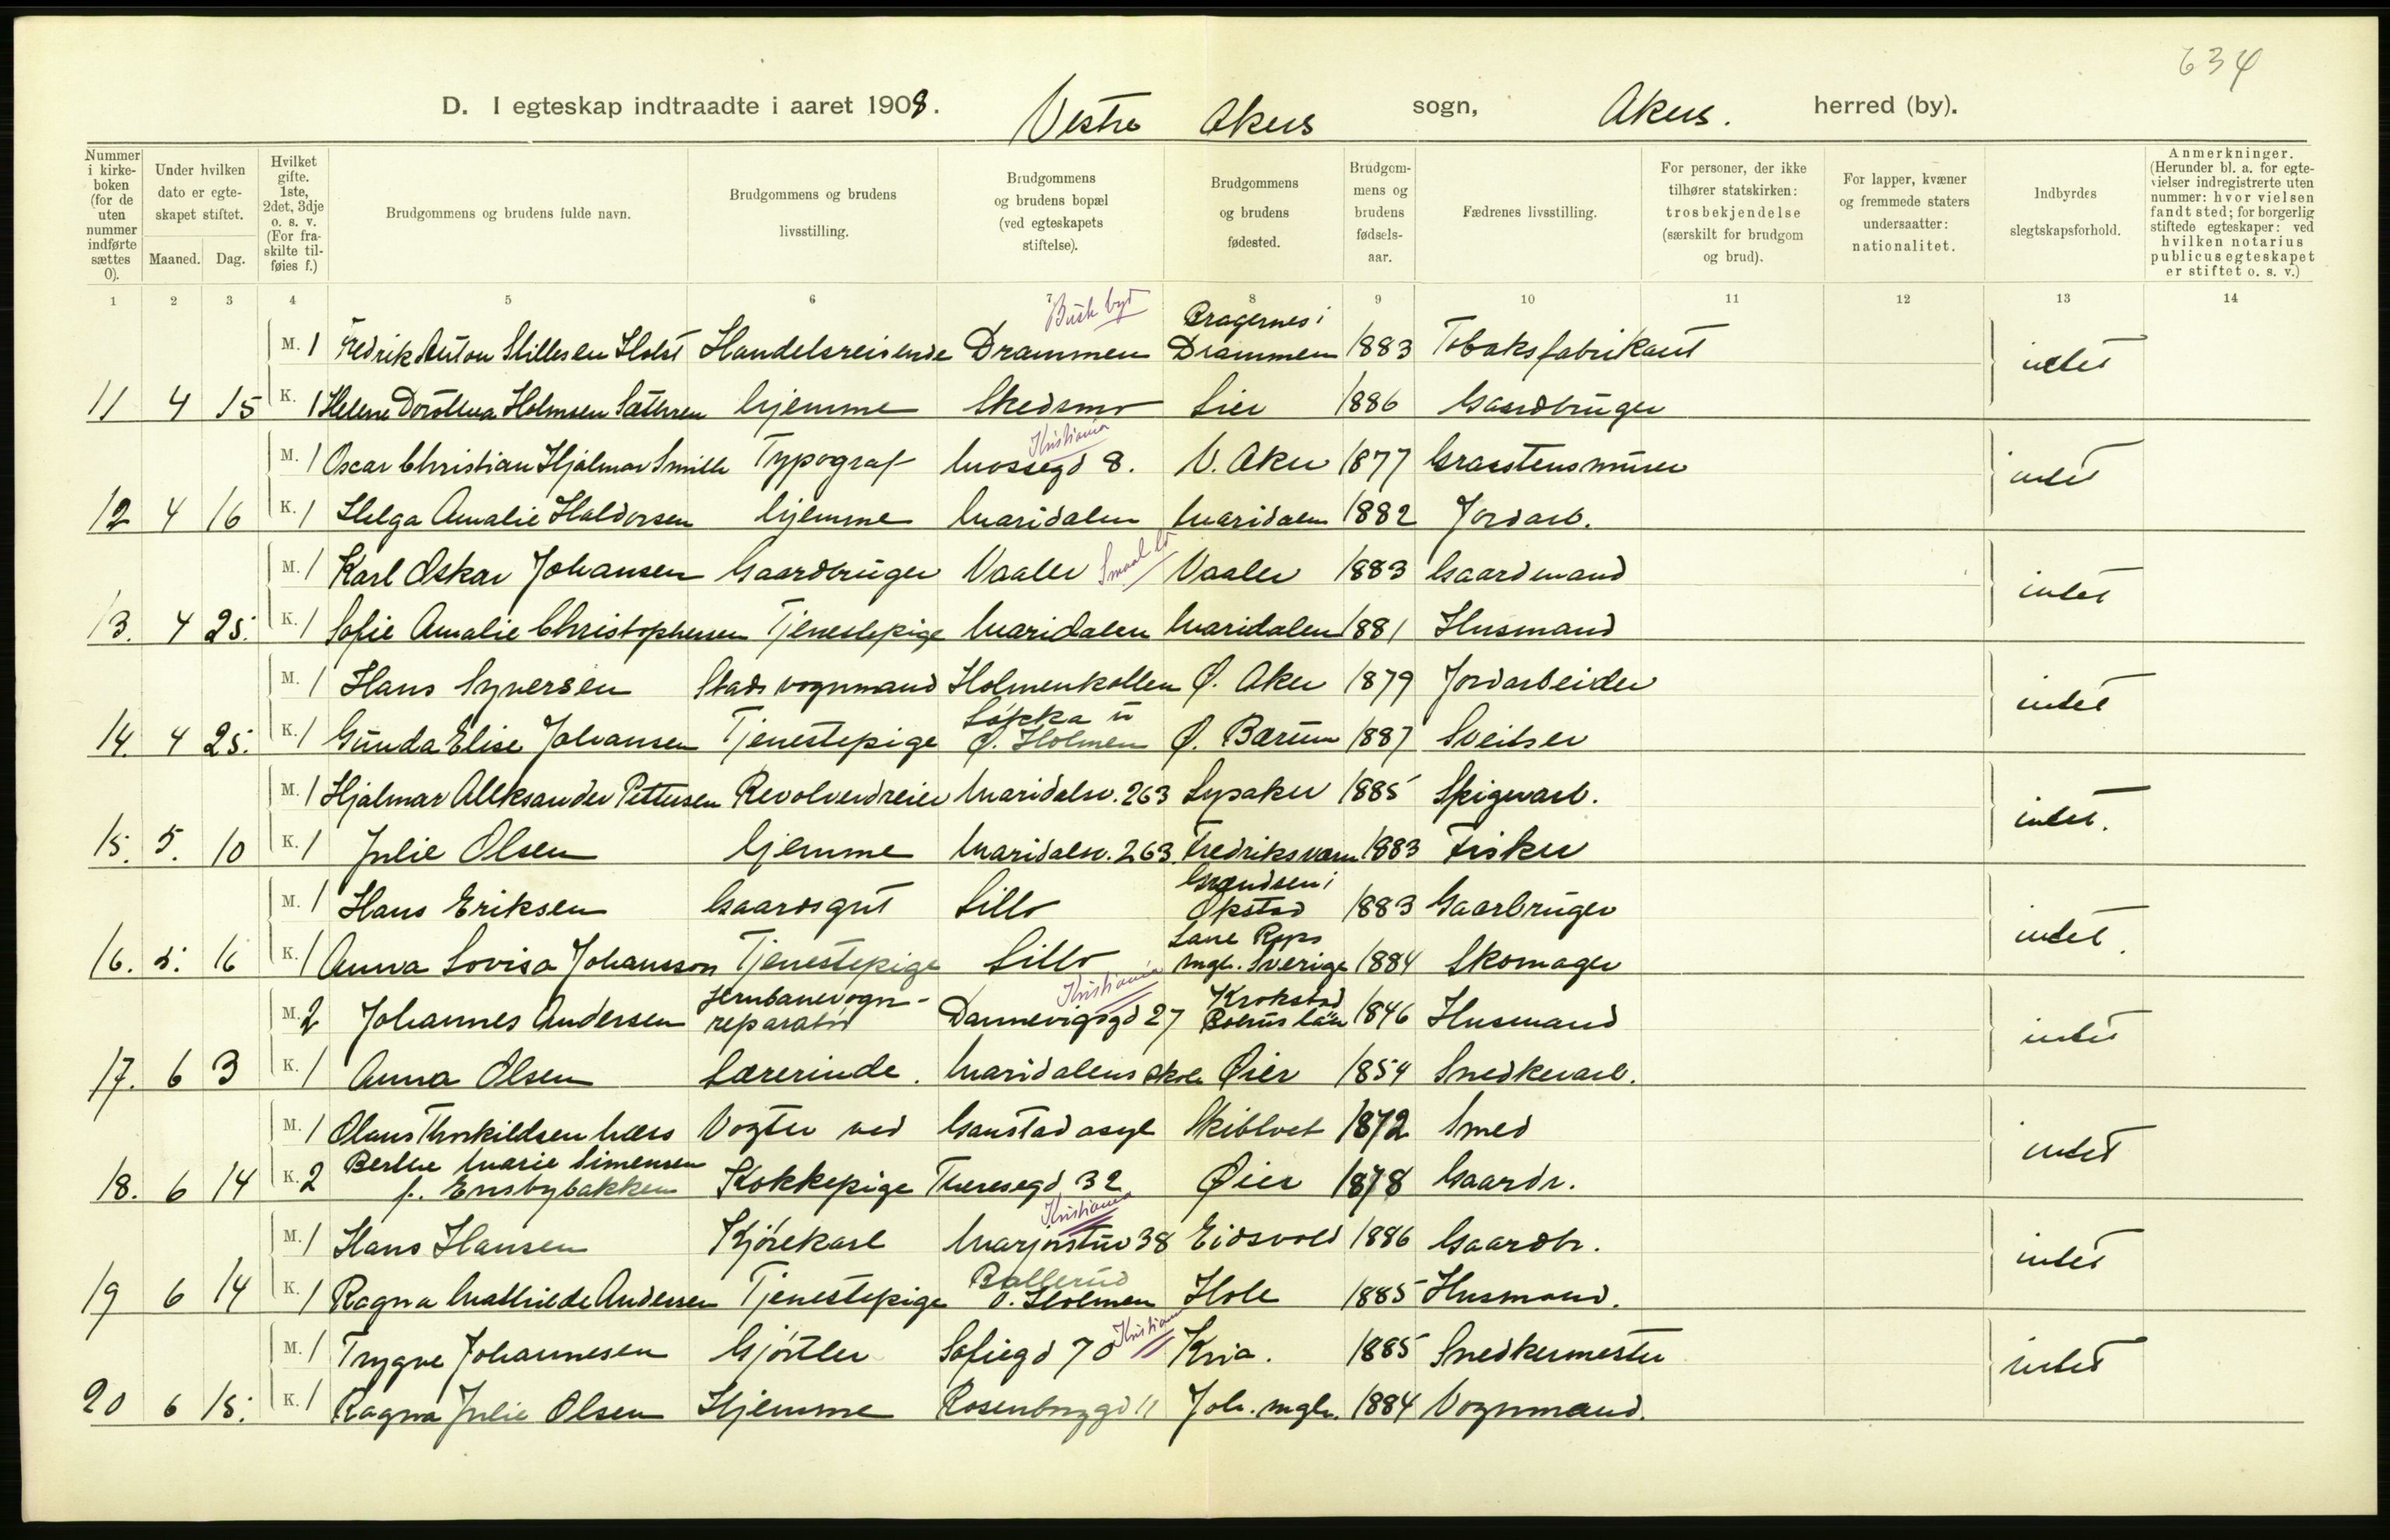 634
D. I egteskap indtraadte i aaret 1908. Vestre Akers sogn, Akers. herred (by).
Nummer i kirke-boken (for de uten nummer indførte sættes 0).
Under hvilken dato er egte-skapet stiftet.
Maaned. Dag.
Hvilket gifte. 1ste, 2det, 3dje o. s. v. (For fra-skilte til-føies f.)
Brudgommens og brudens fulde navn.
Brudgommens og brudens livsstilling.
Brudgommens og brudens bopæl (ved egteskapets stiftelse).
Brudgommens og brudens fødested.
Brudgom-mens og brudens fødsels-aar.
Fædrenes livsstilling.
For personer, der ikke tilhører statskirken: trosbekjendelse (særskilt for brudgom og brud).
For lapper, kvæner og fremmede staters undersaatter: nationalitet.
Indbyrdes slegtskapsforhold.
Anmerkninger. (Herunder bl. a. for egte-vielser indregistrerte uten nummer: hvor vielsen fandt sted; for borgerlig stiftede egteskaper: ved hvilken notarius publicus egteskapet er stiftet o. s. v.)
1 2 3 4 5 6 7 8 9 10 11 12 13 14
M. 1 Fredrik Anton Stillesen Holst Handelsreisende Drammen Bragernes i Drammen 1883 Tobaksfabrikant intet
11 4 15 K. 1 Helene Dorothea Holmsen Sæthren hjemme Skedsmo Lier 1886 Gaardbruger
Kristiania
M. 1 Oscar Christian Hjalmar Smith Typograf Mossegd 8. V. Aker 1877 Graastensmurer intet
12 4 16 K. 1 Helga Amalie Haldorsen hjemme Maridalen Maridalen 1882 Jordarb.
M. 1 Karl Oskar Johansen Gaardbruger Vaaler Vaaler 1883 Gaardmand intet
13. 4 25. K. 1 Sofie Amalie Christophersen Tjenestepige Maridalen Maridalen 1881 Husmand
M. 1 Hans Syversen Stadsvognmand Holmenkollen Ø. Aker 1879 Jordarbeider intet
14. 4 25. K. 1 Gunda Elise Johansen Tjenestepige Ø. Holmen Ø. Bærum 1887 Sveitser
M. 1 Hjalmar Aleksander Pettersen Revolverdreier Maridalsv. 263 Lysaker 1885 Spigerarb. intet.
15. 5. 10 K. 1 Julie Olsen hjemme Maridalsv. 263. Fredriksværn 1883 Fisker
M. 1 Hans Eriksen Gaardsgut Lillo Grændsen i Økstad 1883 Gaarbruger intet.
16. 5. 16 K. 1 Anna Lovisa Johansson Tjenestepige Lillo mgh. Sverige 1884 Skomager
Kristiania
M. 2 Johannes Andersen Jernbanevogn-reparatør Dannevigsgd 27 Krokstad Bohus län 1846 Husmand intet
17. 6 3 K. 1 Anna Olsen Lærerinde. Maridalens skole Øier 1854 Snedkerarb.
M. 1 Olaus Thorkildsen Næss Vogter ved Gaustad asyl Skibtvet 1872 Smed intet
18. 6 14 K. 2 Berthe Marie Simensen f. Ensbybakken Kokkepige Theresegd 32 Øier 1878 Gaardr.
Kristiania
M. 1 Hans Hansen Kjørekarl Marjorstuv 38 Eidsvold 1886 Gaardbr. intet
19 6 14 K. 1 Ragna Mathilde Andersen Tjenestepige Ballerud V. Holmen Hole 1885 Husmand.
Kristiania
M. 1 Trygve Johannesen Gjørtler Sofiegd 70 Kria. 1885 Snedkermester intet
20 6 15. K. 1 Ragna Julie Olsen Hjemme Rosenborggd 11 Joh. mgh. 1884 Vognmand.